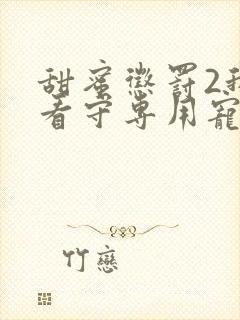 甜蜜懲罰2我
看守專用寵
竹戀